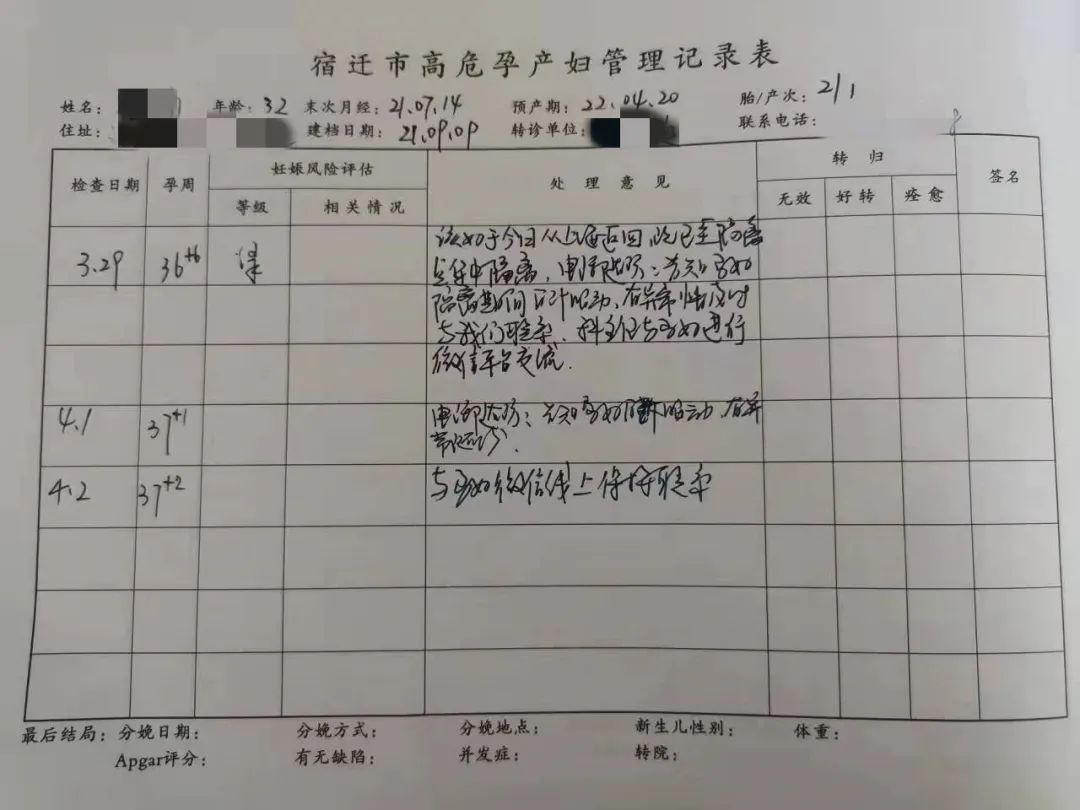 宿迁市高危孕产妇管理记录表
姓名： 年龄：32 末次月经：21.07.14 预产期：22.04.20 胎/产次：2/1
住址： 建档日期：21.09.09 转诊单位： 联系电话： 8
检查日期 孕周 妊娠风险评估 处理意见 转归 签名
等级 相关情况 无效 好转 痊愈
3.29 36+6 该妇于今日从上海返回 现已至隔离
点集中隔离，电话随访：告知孕妇
隔离期间自计胎动，有异常情况及时
与我们联系，科主任与孕妇进行
微信平台交流.
4.1 37+1 电话随访：告知孕妇 胎动 有异
常随访.
4.2 37+2 与孕妇微信线上保持联系
最后结局：分娩日期： 分娩方式： 分娩地点： 新生儿性别： 体重：
Apgar评分： 有无缺陷： 并发症： 转院：